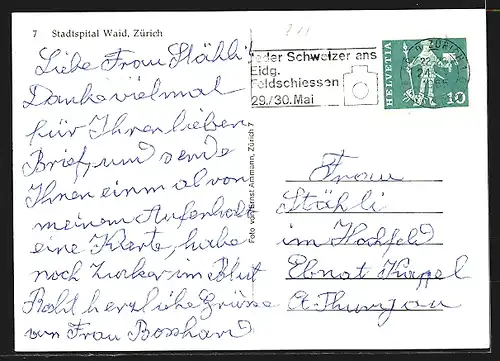 7 Stadtspital Waid, Zürich
Liebe Frau Stähli
Danke vielmal
für Ihren lieben
Brief, und sende
Ihnen einmal von
meinem Aufenhalt
eine Karte, habe
noch Zucker im Blut
Recht herzliche Grüsse
von Frau Bosshard
Foto von Ernst Ammann, Zürich
Jeder Schweizer ans
Eidg.
Feldschiessen
29./30. Mai
ZÜRICH
HELVETIA
10
Frau
Stähli
im Hochfeld
Ebnat Kappel